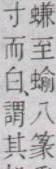 蠊至蝓八篆
寸而白謂其